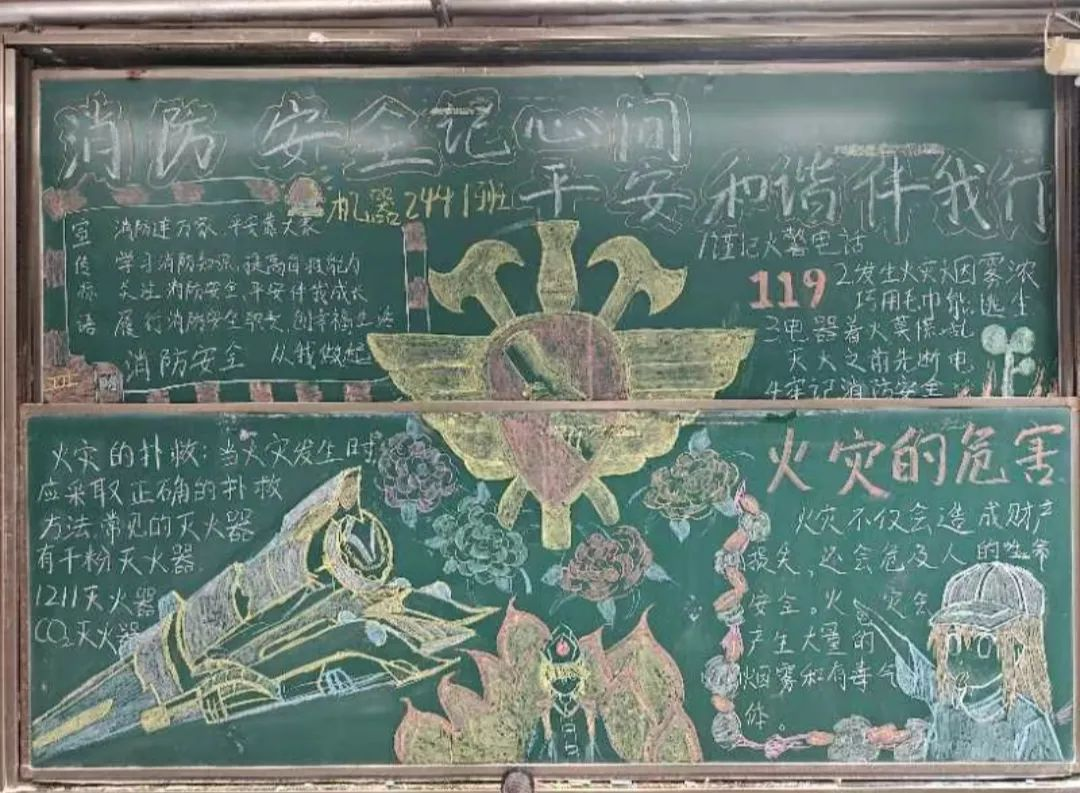 消防安全记心间
平安和谐伴我行
机器2441班
宣传标语
消防连万家,平安靠大家
学习消防知识,提高自救能力
关注消防安全,平安伴我成长
履行消防安全职责,创幸福生活
消防安全 从我做起
1谨记火警电话
119
2.发生火灾烟雾浓
巧用毛巾能逃生
3电器着火莫慌乱
灭火之前先断电
4牢记消防安全
火灾的扑救:当火灾发生时
应采取正确的扑救
方法,常见的灭火器
有干粉灭火器
1211灭火器
CO₂灭火器
火灾的危害
火灾不仅会造成财产
损失,还会危及人的性命
安全。火灾会
产生大量的
烟雾和有毒气
体。